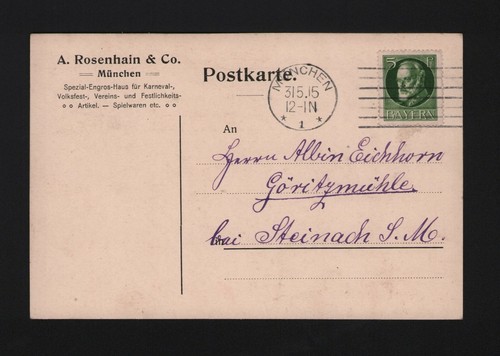 A. Rosenhain & Co.
München
Spezial-Engros-Haus für Karneval-,
Volksfest-, Vereins- und Festlichkeits-
Artikel. — Spielwaren etc.
Postkarte.
MÜNCHEN
31.5.15
12-1N
* 1 *
5 Pf
BAYERN
An
Herrn Albin Eichhorn
Göritzmühle
bei Steinach S. M.